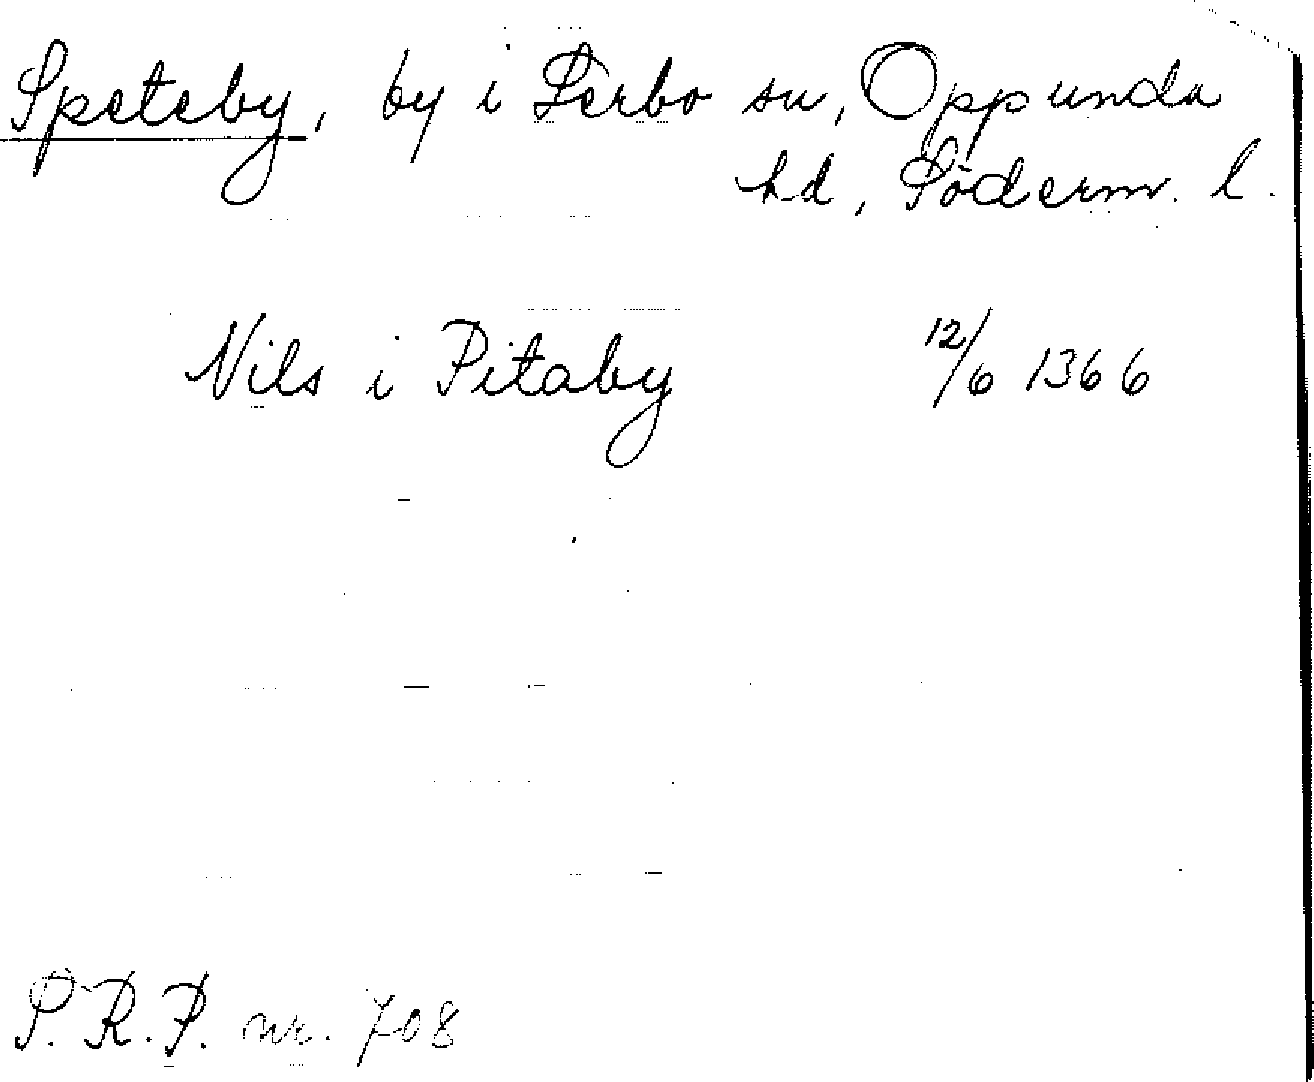 Speteby, by i Lerbo sn, Oppunda
hd, Söderm. l.
Nils i Pitaby 12/6 1366
S.R.P. nr. 708